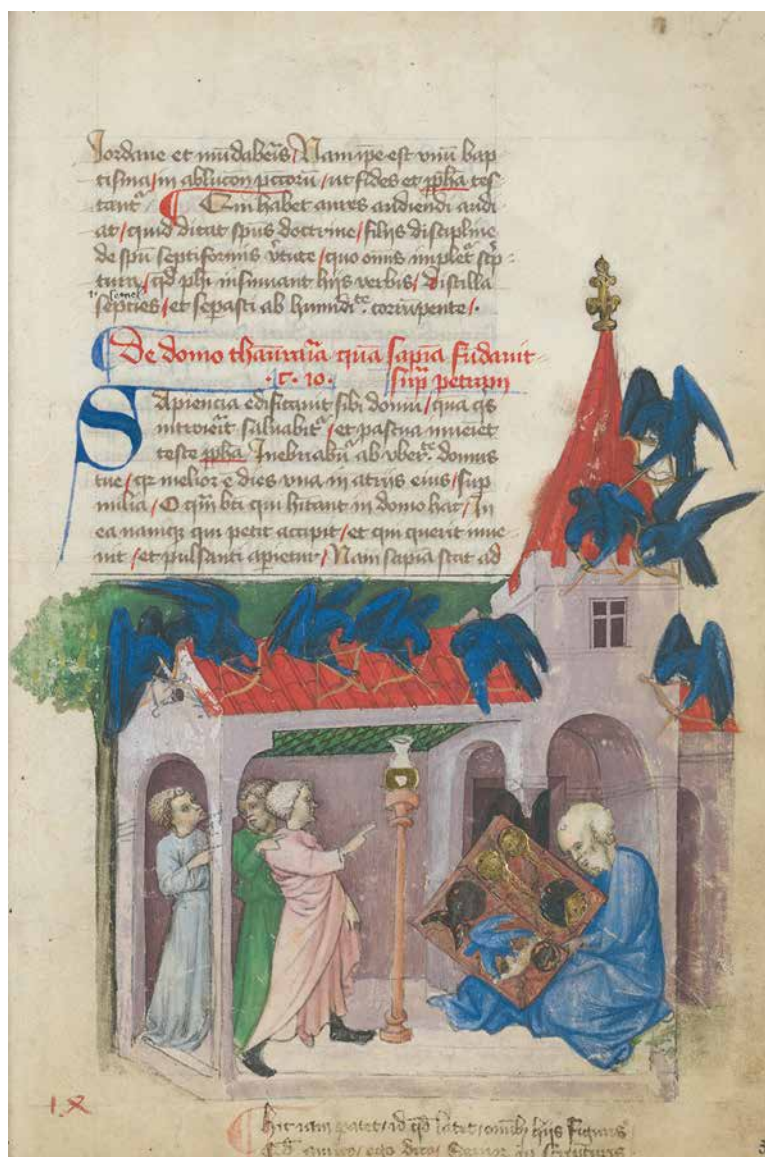 Jordane et mūdaberis / Nam ipe est vnū bap
tisma / in abluconē pctorū / ut fides et ppha tes
tantᵃ ¶ Qui habet aures audiendi audi
at / quid dicat spūs doctrine / filijs discipline
de spū septiformis vtute / quo omnis impletᵃ scp
tura / qd phi insinuant hijs verbis / distilla
septies / et sepasti ab humidite corrūpente / .
De domo thauraria quā sapia fūdauit
.C. 10. sup petram
Sapiencia edificauit sibi domū / quā qs
introierit saluabitᵃ / et pascua inueiet
teste ppha Inebriabūᵃ ab vberte domus
tue / qr melior e dies vna in atrijs eius / sup
milia / O qm bti qui hitant in domo hac / In
ea namqꝫ qui petit accipit / et qui querit inue
nit / et pulsanti apietur / Nam sapia stat ad
I.X
hic iam patet / id qd latet / omibꝫ hijs figuris